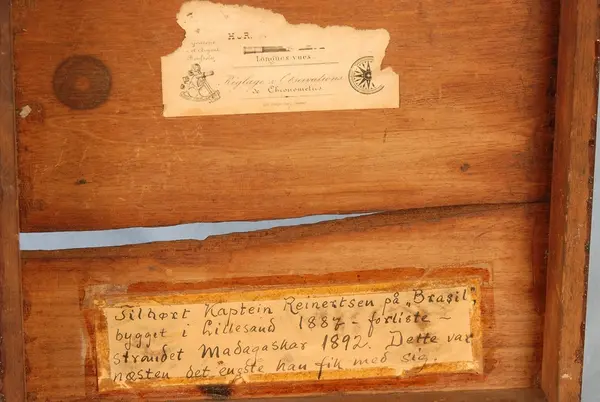 HOR
Longues vues.
Réglage & Observations
de Chronomètres
Tilhørt Kaptein Reinertsen på „Brasil",
bygget i Lillesand 1887 – forliste –
strandet Madagaskar 1892. Dette var
næsten det eneste han fik med sig.